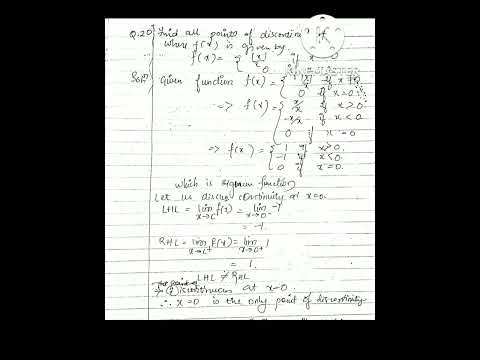 Q.20) Find all points of discontinui of
where f(x) is given by.
f(x) = { |x|/x if x 0
0
Soln) Given function f(x) = { |x|/x if x ≠ 0
0 if x = 0
=> f(x) = { x/x if x > 0
-x/x if x < 0
0 if x = 0
=> f(x) = { 1 if x > 0.
-1 if x < 0
0 if x = 0.
which is signum function
Let us discuss continuity at x = 0.
LHL = lim x→0⁻ f(x) = lim x→0⁻ -1
= -1.
RHL = lim x→0⁺ f(x) = lim x→0⁺ 1
= 1.
LHL ≠ RHL
the point of
=> discontinuous at x = 0.
∴ x = 0 is the only point of discontinuity.